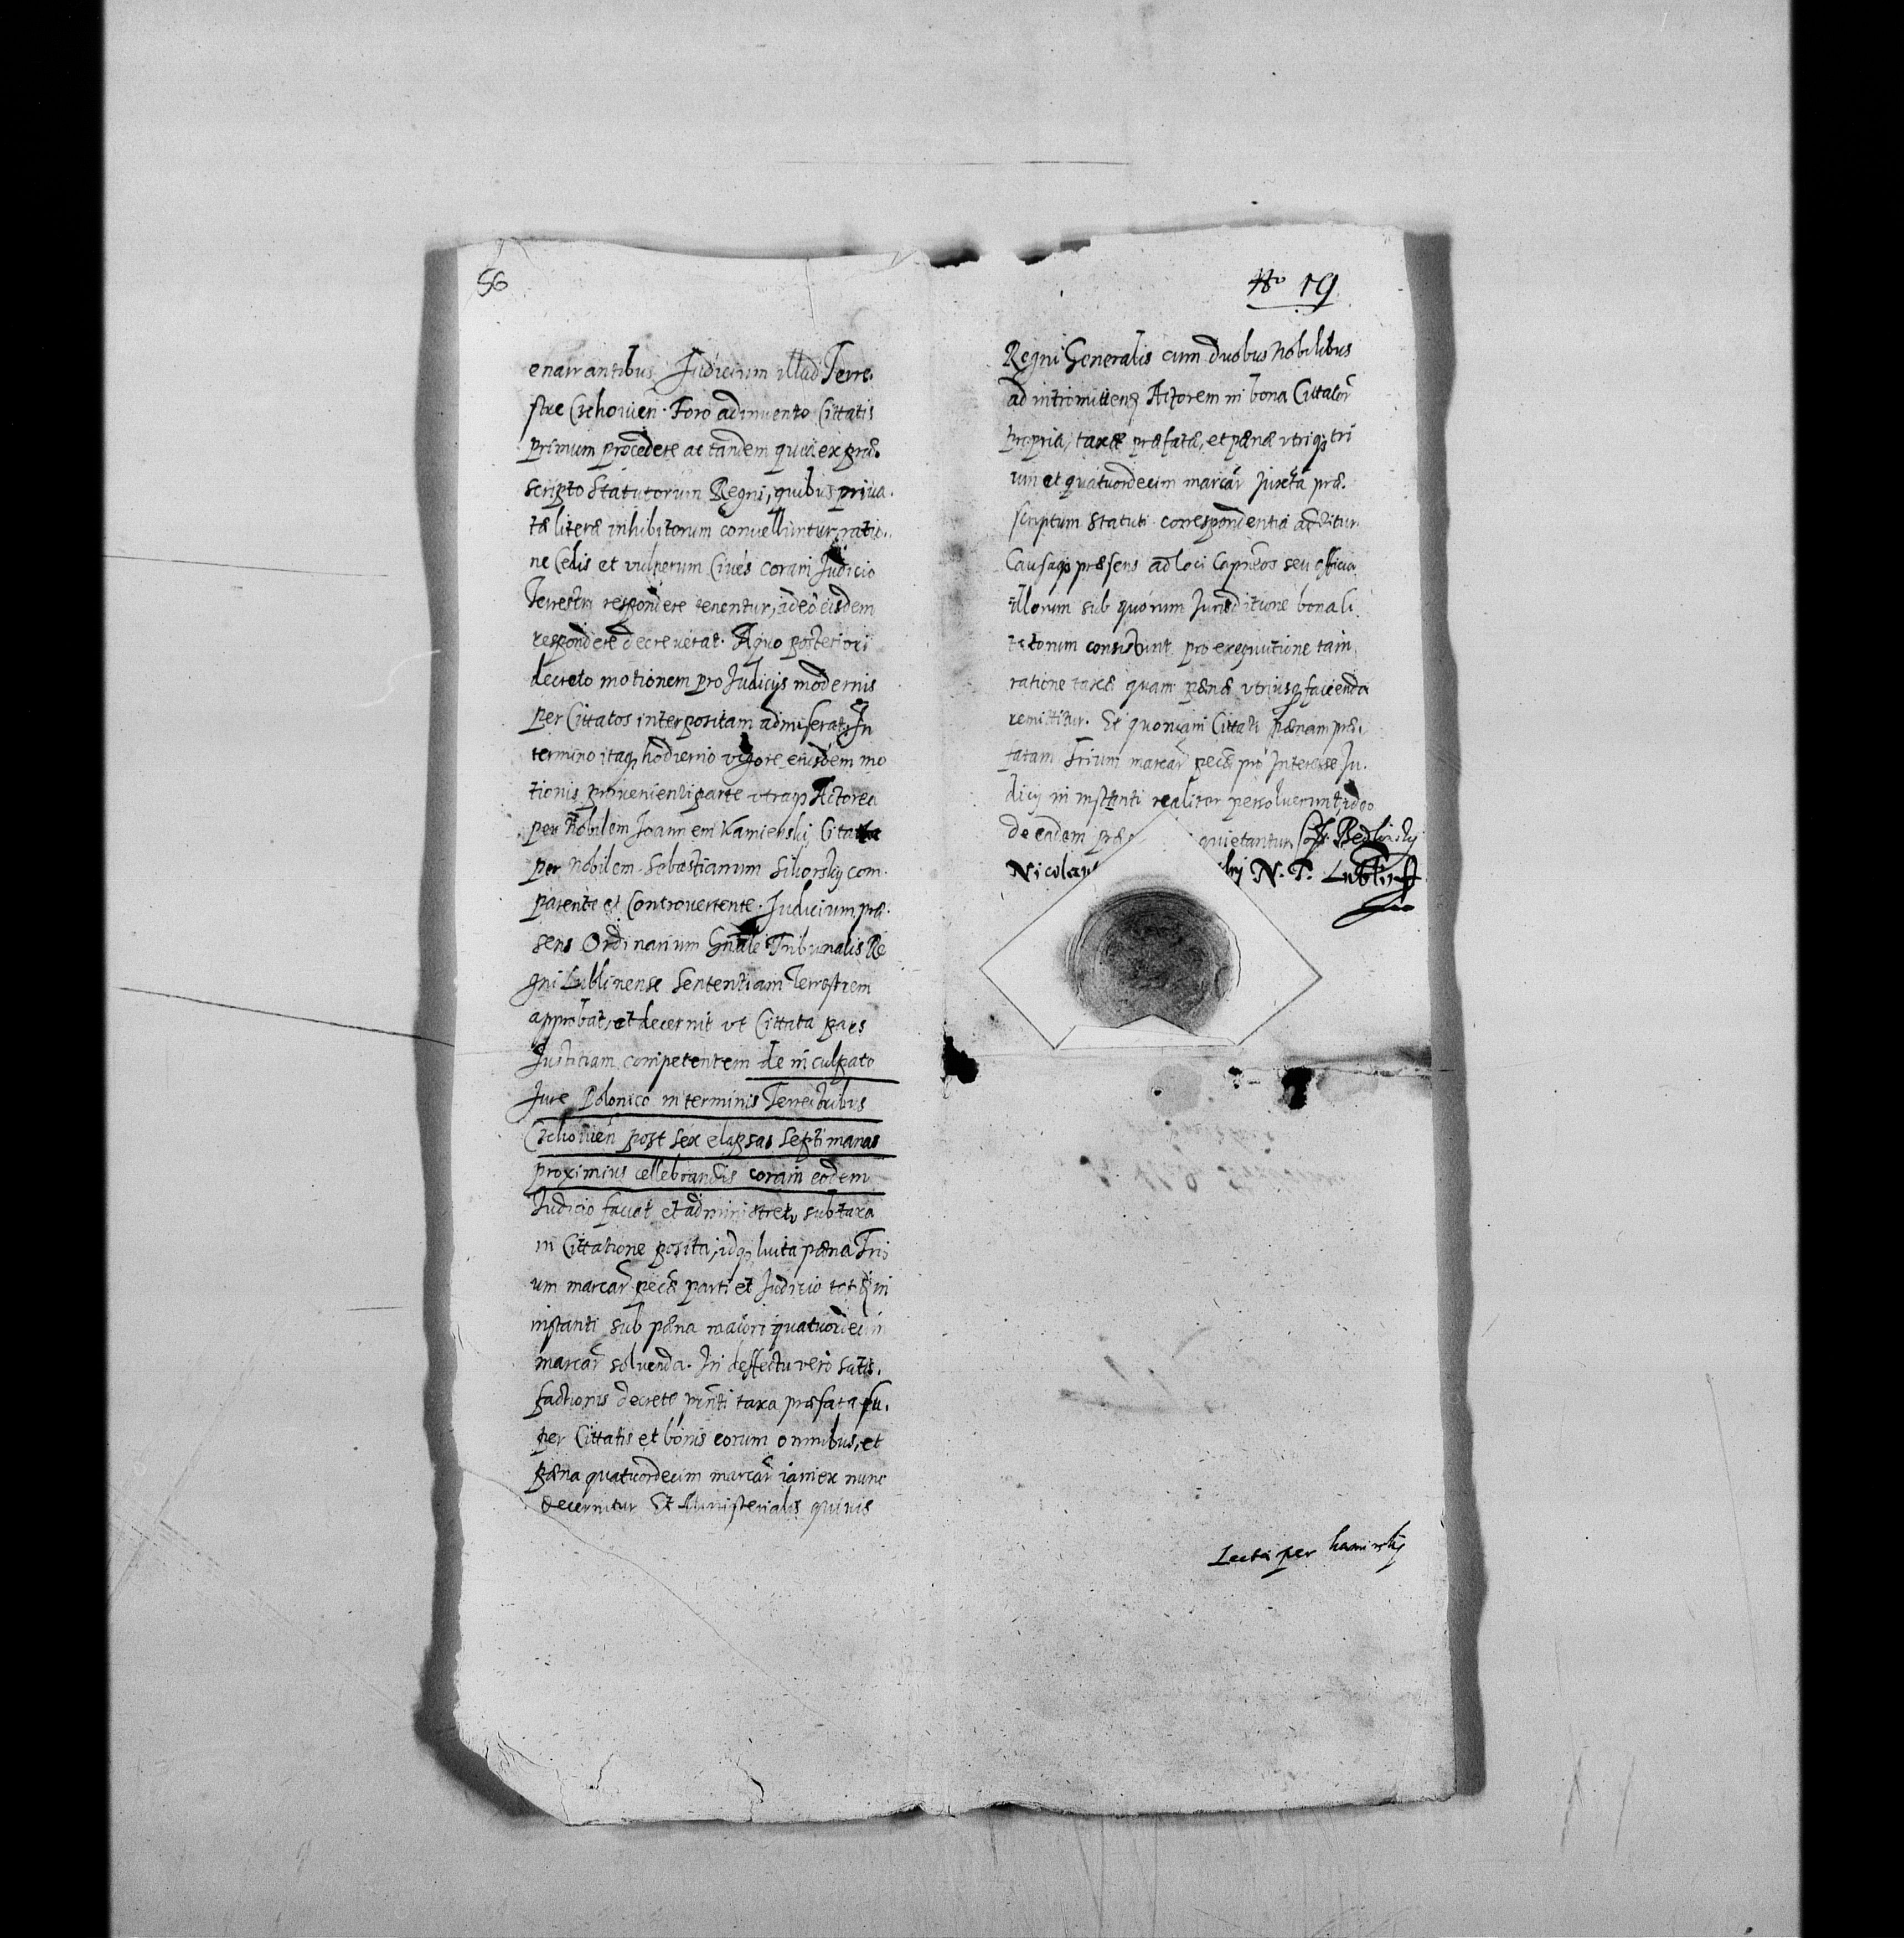 56
enarrantibus Judicium illud Terre.
stre Czchovien. Foro adinvento Cittatis
primum procedere ac tandem quia ex præ.
scripto Statutorum Regni, quibus priva.
tæ literæ inhibitorum convelluntur, ratio.
ne Cedis et vulnerum Cives coram Judicio
Terrestri respondere tenentur, ideo eisdem
respondere decreverat. A quo posteriori
decreto motionem pro Judicijs modernis
per Cittatos interpositam admiserat. In
termino itaq hodierno vigore eiusdem mo
tionis provenienti parte utraq Actorea
per Nobilem Joannem Kamienskj Citata
per nobilem Sebastianum Sikorskij com.
parente et Controvertente. Judicium præ.
sens Ordinarium Gnāle Tribunalis Re
gni Lublinense Sententiam Terrestrem
approbat, et decernit vt Cittata pars
Justitiam competentem de inculpato
Jure Polonico in terminis Terrestribus
Czchovien post sex elapsas septimanas
proximius cellebrandis coram eodem
Judicio faciat et administret, sub taxa
in Cittatione posita, idq luita pæna Tri
um marcar pecæ parti et Judicio totidē in
instanti sub pæna maiori quatuordecim
marcar solvenda. In deffectu vero satis.
factionis decreto pnti taxa præfata su.
per Cittatis et bonis eorum omnibus, et
pæna quatuordecim marcar iam ex nunc
decernitur Et Ministerialis quivis
No 19
Regni Generalis cum duobus Nobilibus
ad intromittend Actorem in bona Cittator
propria, taxæ præfatæ, et pænæ vtriq tri
um et quatuordecim marcar juxta præ.
scriptum Statuti correspondentia additur
Causaq præsens ad loci Capneos seu officia
illorum sub quorum Jurisditione bona Ci
tatorum consistunt pro exequutione tam
ratione taxæ quam pænæ vtriusq facienda
remittitur. Et quoniam Cittati pænam præ.
fatam Trium marcar pecæ pro Interesse Ju.
dicij in instanti realiter persolverunt, ideo
de eadem præ quietantur
Nicolaus N. T. Lublin
Lecta per Kamienskj